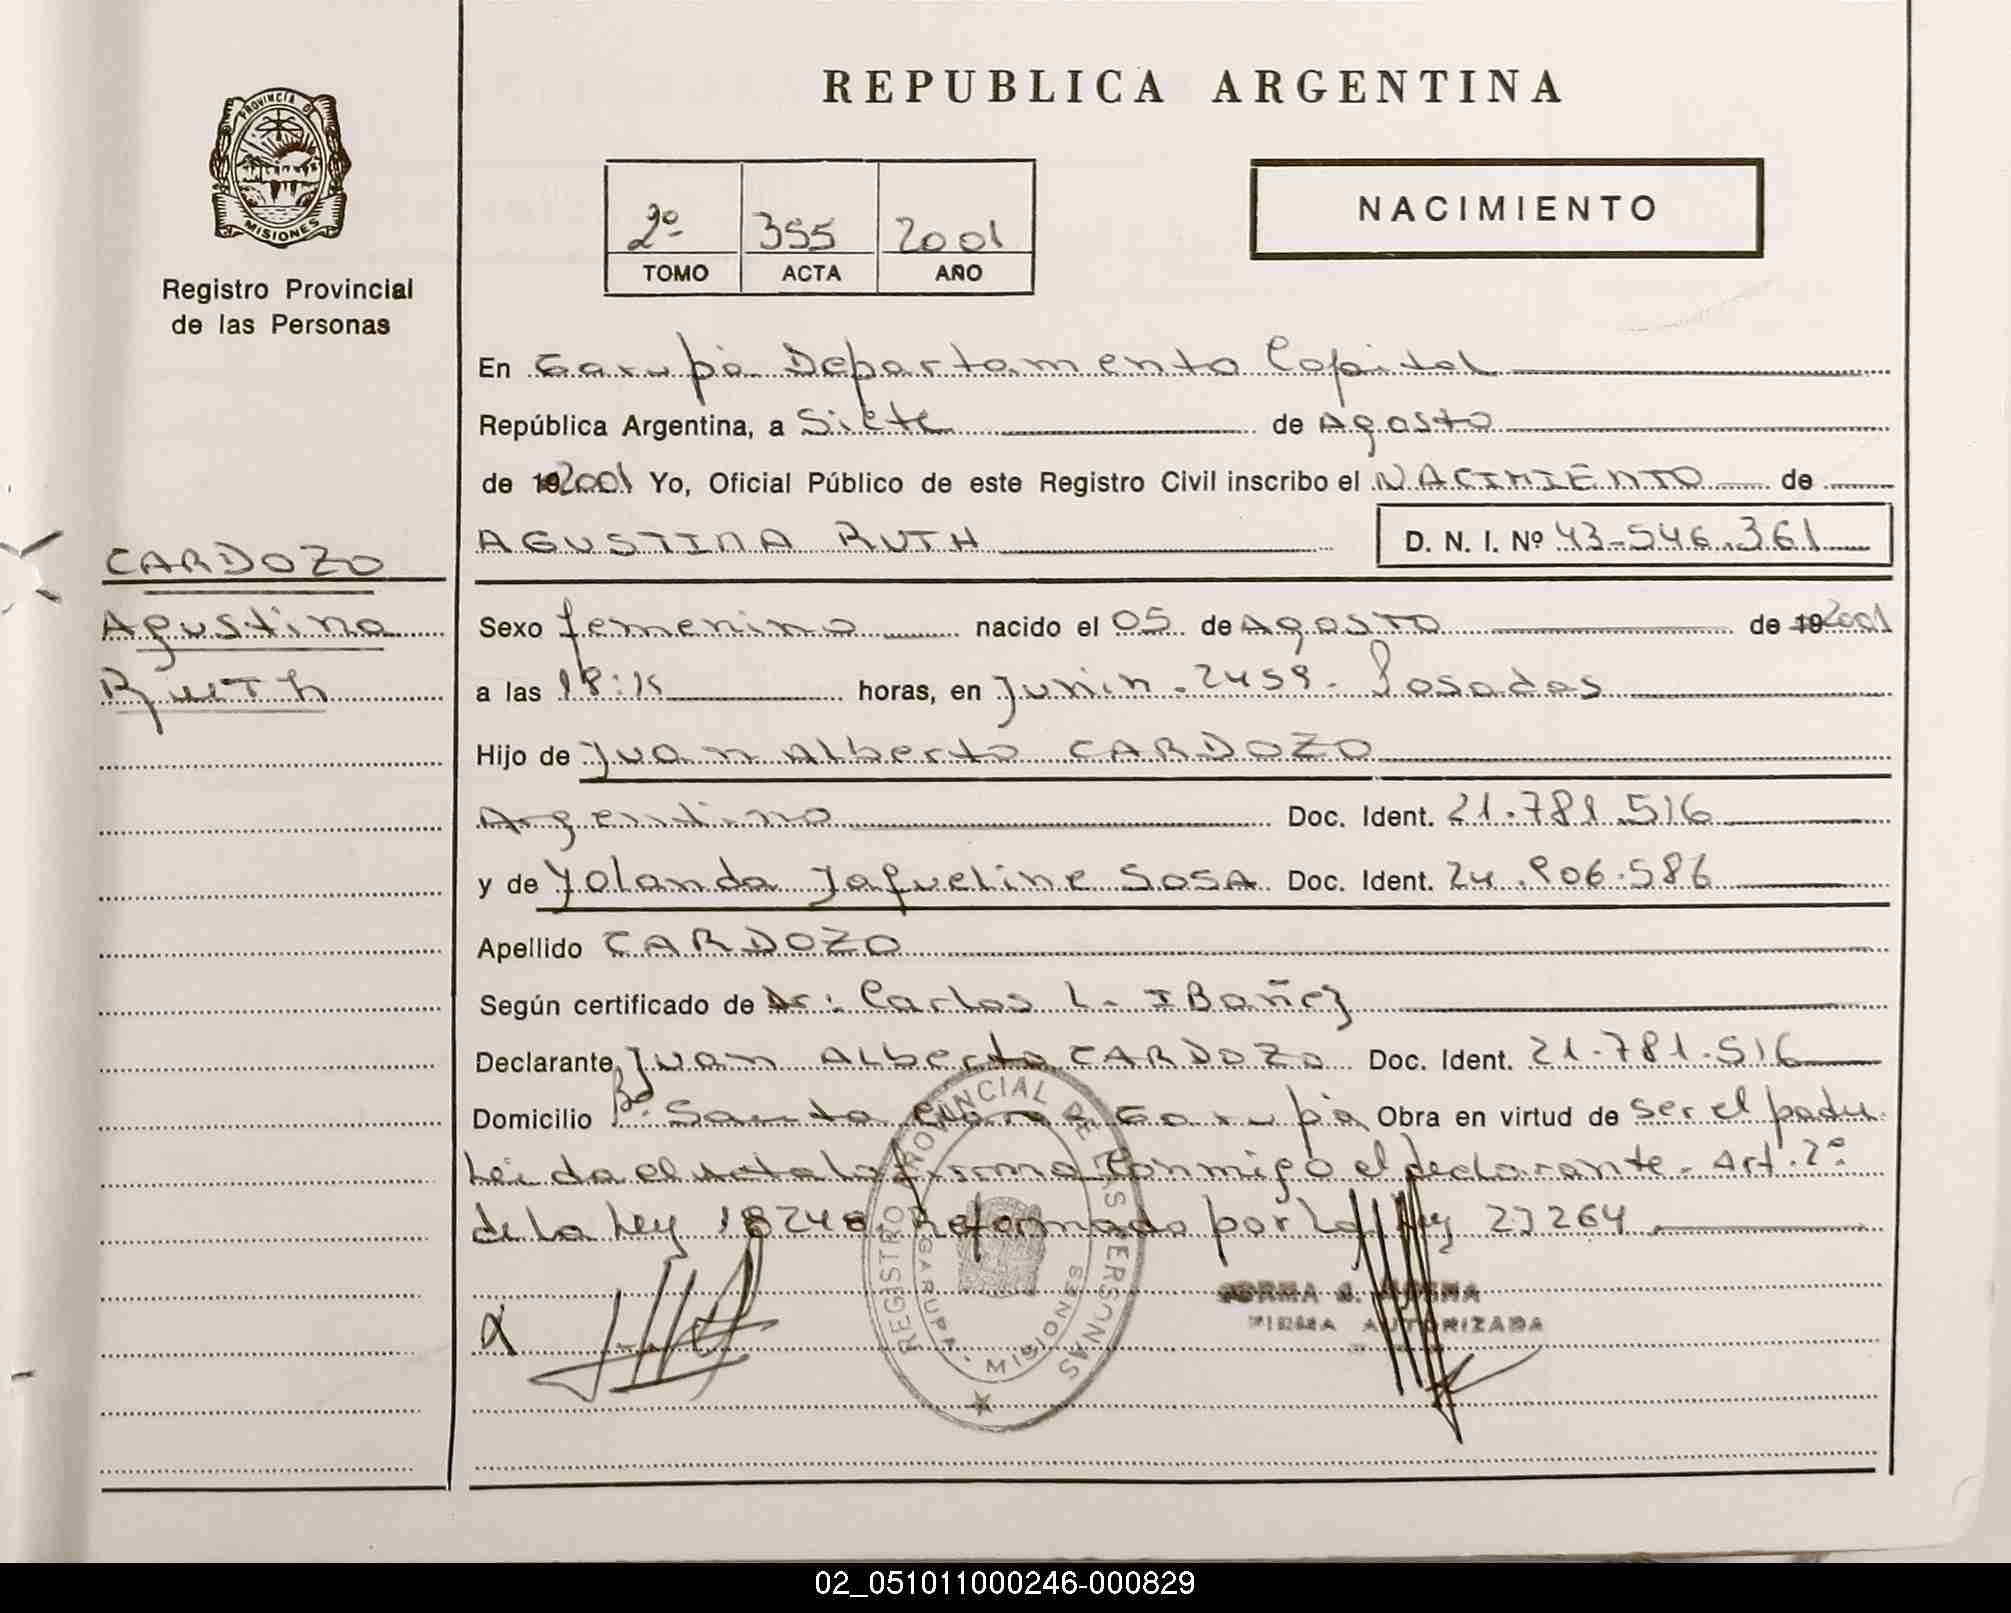 REPUBLICA ARGENTINA
PROVINCIA DE MISIONES
Registro Provincial
de las Personas
2º 355 2001
TOMO ACTA AÑO
NACIMIENTO
En Garupá Departamento Capital
República Argentina, a Siete de Agosto
de 19 2001 Yo, Oficial Público de este Registro Civil inscribo el NACIMIENTO de
AGUSTINA RUTH D. N. I. Nº 43-546.361
CARDOZO
Agustina
Ruth
Sexo femenino nacido el 05 de Agosto de 19 2001
a las 18:15 horas, en Junin. 2459. Posadas
Hijo de Juan Alberto CARDOZO
Argentino Doc. Ident. 21.781.516
y de Yolanda Jaqueline SOSA Doc. Ident. 24.906.586
Apellido CARDOZO
Según certificado de Dr: Carlos L. IBañez
Declarante Juan Alberto CARDOZO Doc. Ident. 21.781.516
Domicilio Bº. Santa Clara Garupá Obra en virtud de ser el padre.
Leida el acta la firma conmigo el declarante. Art. 2º
de la Ley 18248 Reformado por la Ley 23264
REGISTRO PROVINCIAL DE LAS PERSONAS
GARUPA - MISIONES
FIRMA AUTORIZADA
02_051011000246-000829